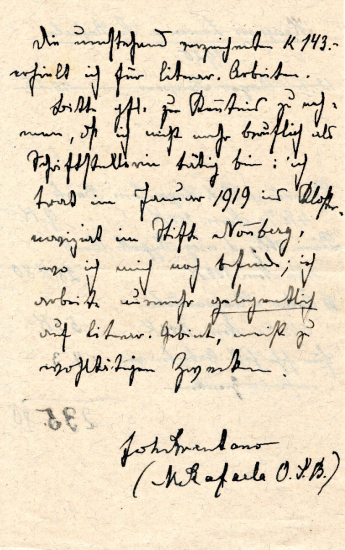 Die umstehend verzeichneten K 143.-
erhielt ich für literar. Arbeiten.
Bitte gfl. zur Kenntnis zu neh-
men, daß ich nicht mehr beruflich als
Schriftstellerin tätig bin: ich
trat im Januar 1919 ins Kloster-
noviziat im Stift Nonnberg,
wo ich mich noch befinde; ich
arbeite nunmehr gelegentlich
auf literar. Gebiet, meist zu
wohltätigen Zwecken.
(M Rafaela O.S.B.)